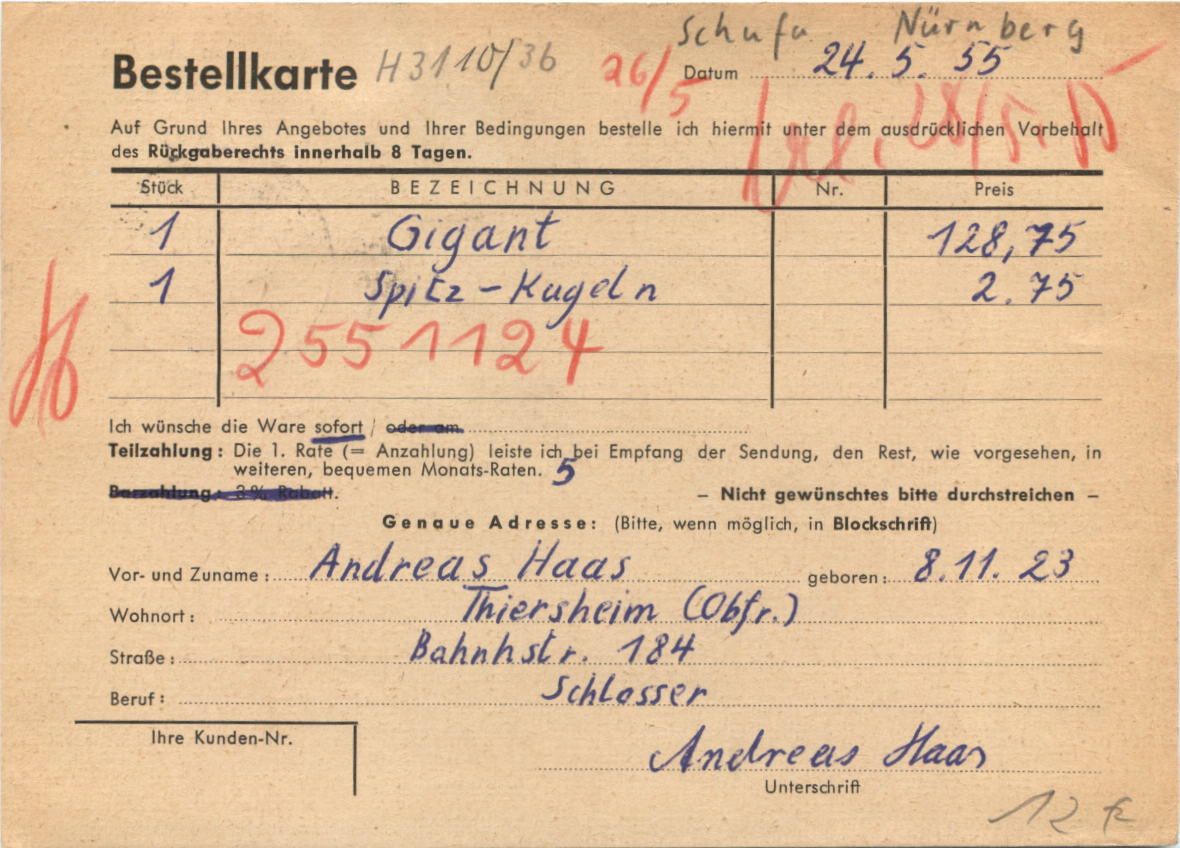 Schufa Nürnberg
Bestellkarte H3110/36 26/5 Datum 24. 5. 55
28/5.
Auf Grund Ihres Angebotes und Ihrer Bedingungen bestelle ich hiermit unter dem ausdrücklichen Vorbehalt
des Rückgaberechts innerhalb 8 Tagen.
Stück BEZEICHNUNG Nr. Preis
1 Gigant 128,75
1 Spitz-Kugeln 2.75
2551124
Ich wünsche die Ware sofort / oder am
Teilzahlung: Die 1. Rate (= Anzahlung) leiste ich bei Empfang der Sendung, den Rest, wie vorgesehen, in
weiteren, bequemen Monats-Raten. 5
Barzahlung: 3% Rabatt.
– Nicht gewünschtes bitte durchstreichen –
Genaue Adresse: (Bitte, wenn möglich, in Blockschrift)
Vor- und Zuname: Andreas Haas geboren: 8.11. 23
Wohnort: Thiersheim (Obfr.)
Straße: Bahnhstr. 184
Beruf: Schlosser
Ihre Kunden-Nr.
Andreas Haas
Unterschrift
12 €